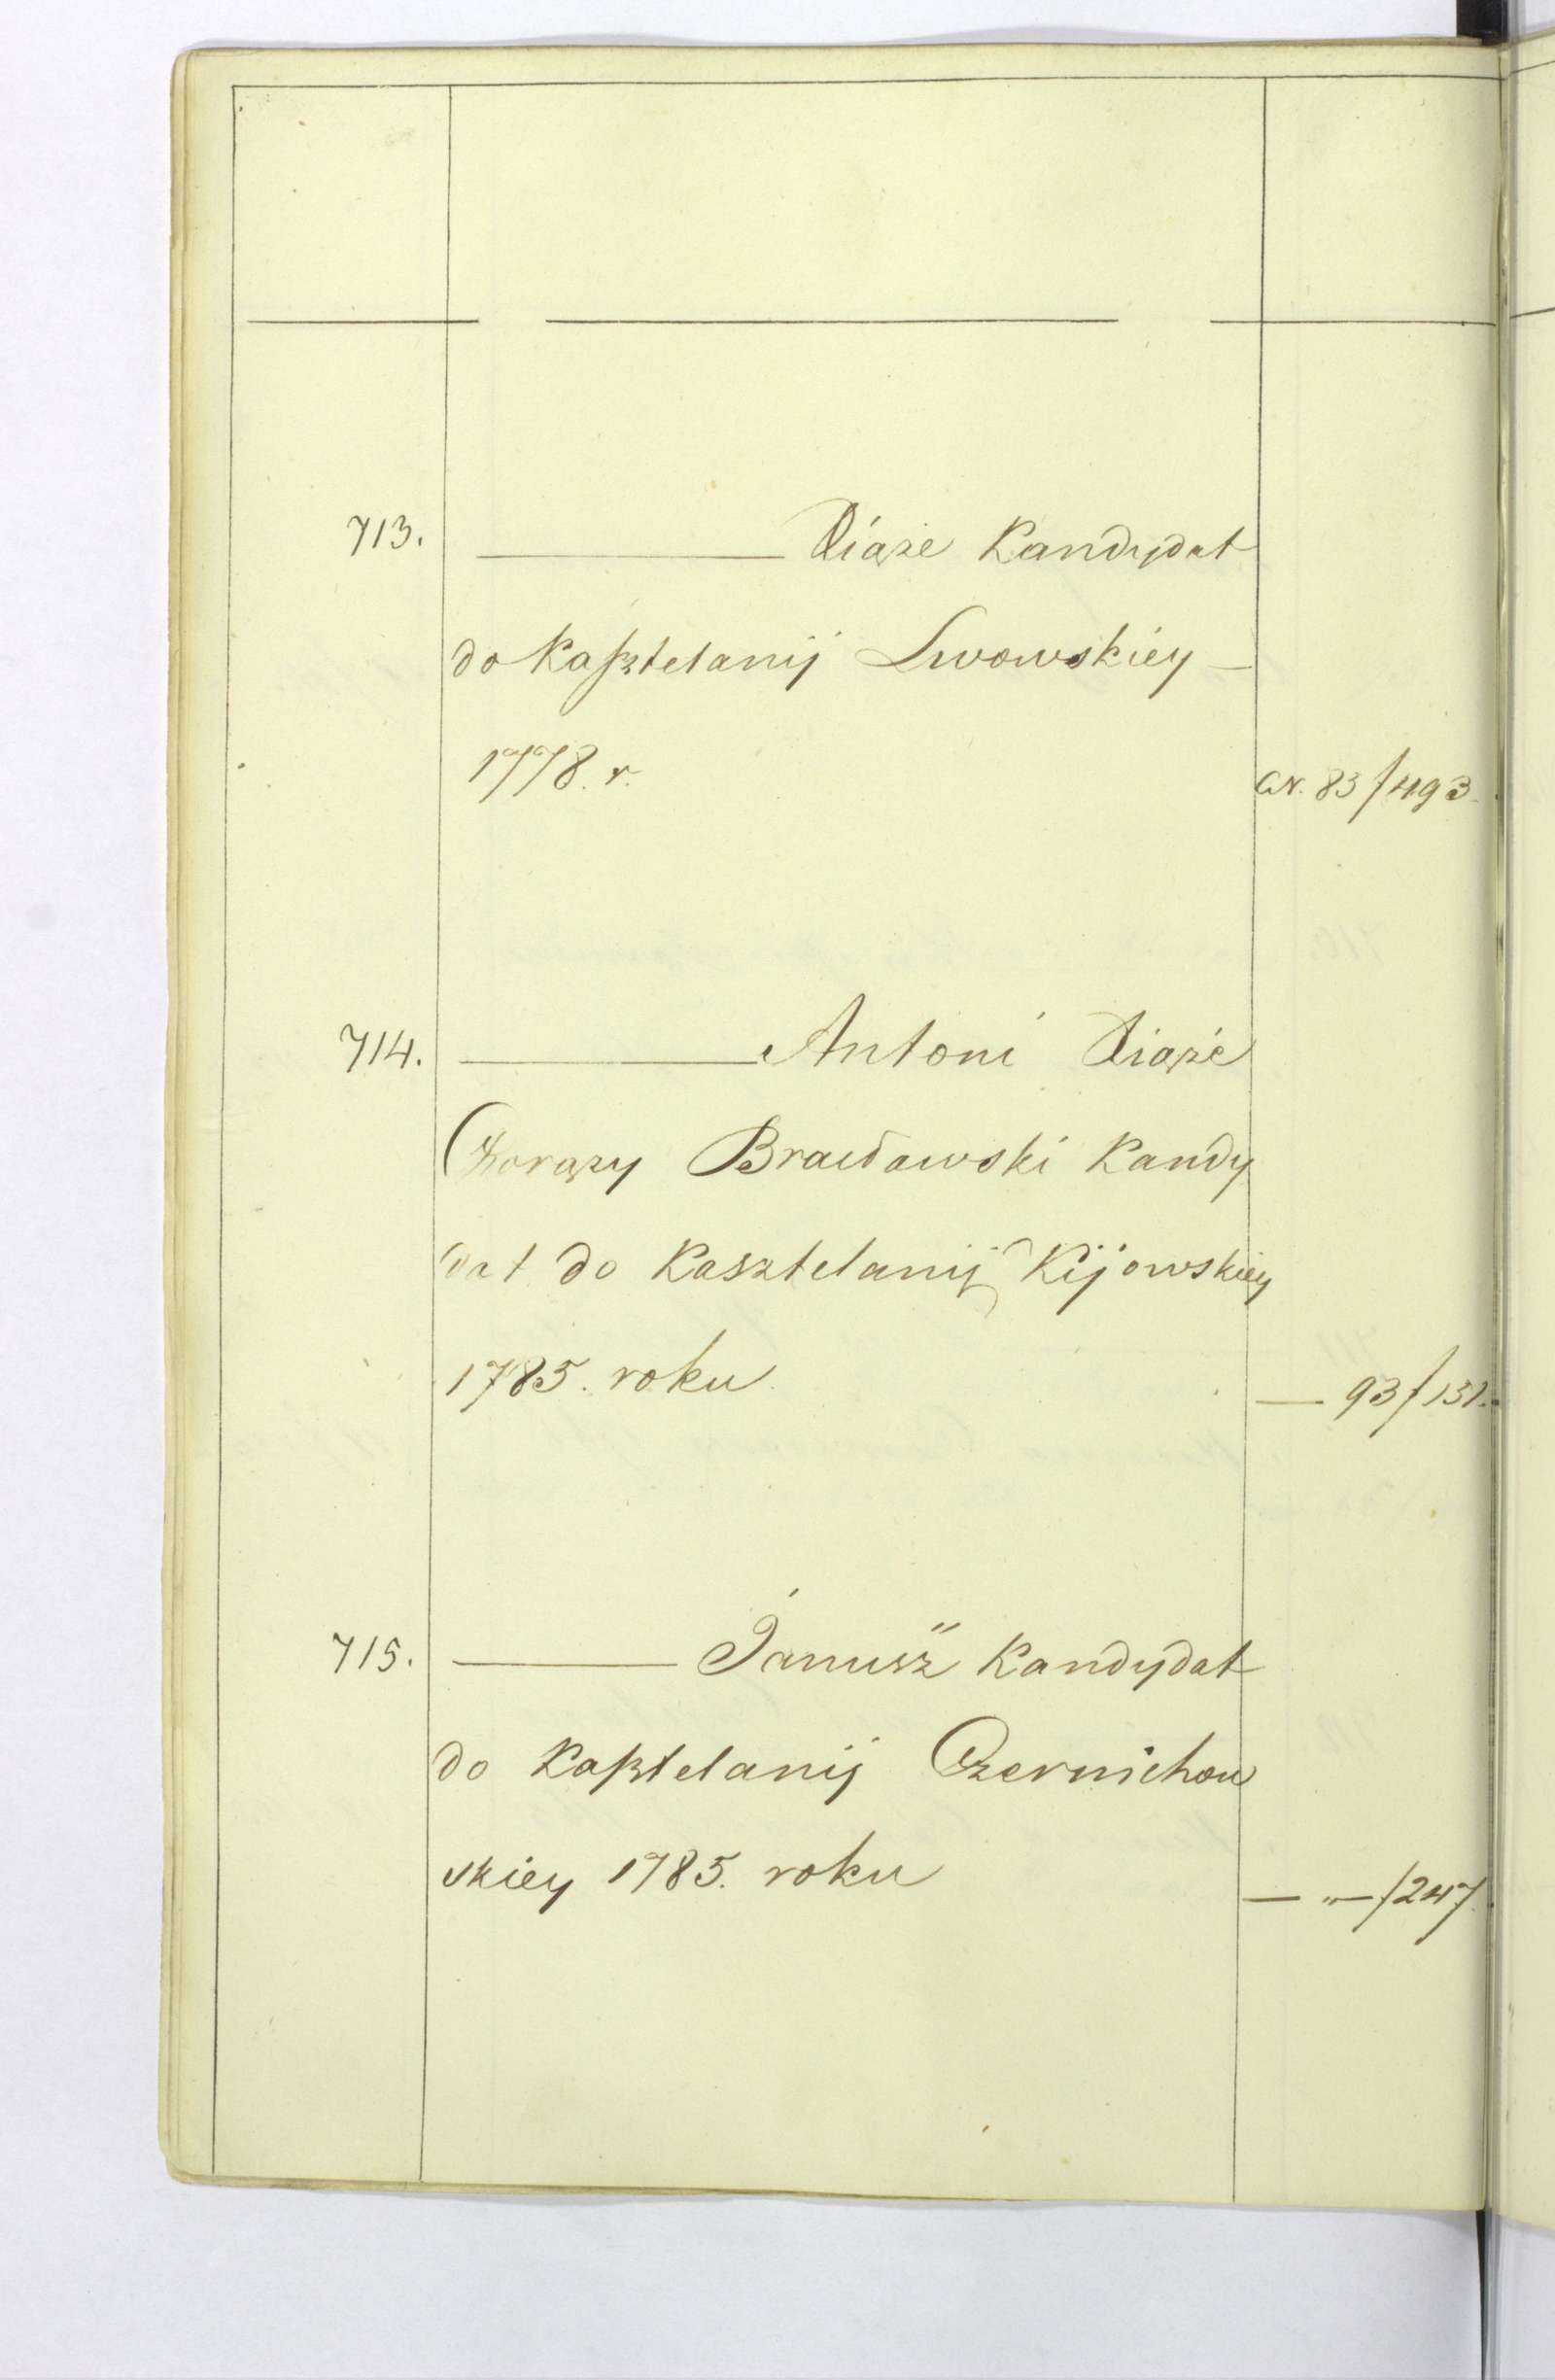 713. ——— Xiąże Kandydat
do Kasztelanij Lwowskiey —
1778. r. CN. 83/493.
714. ——— Antoni Xiąże
Chorąży Bracławski Kandy
dat do Kasztelanij Kijowskiey
1785. roku. — 93/131.
715. ——— Janusz Kandydat
do Kasztelanij Czernichow
skiey 1785. roku — „—/247.